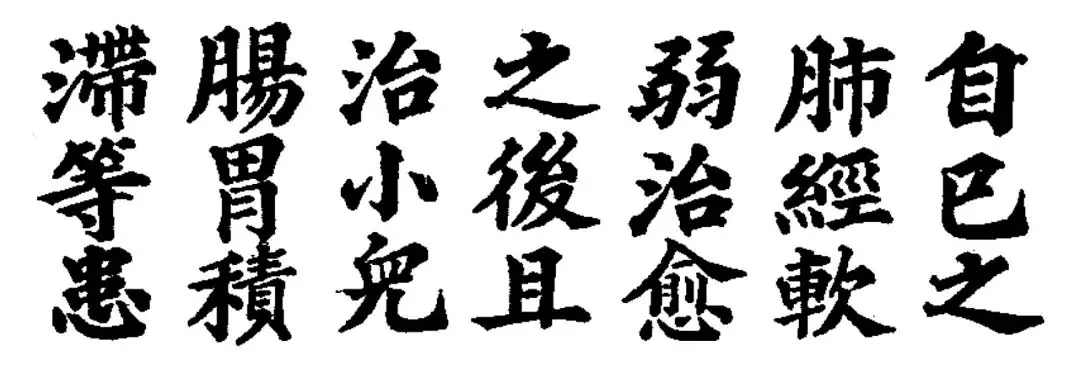 自已之
肺經軟
弱治愈
之後且
治小兒
腸胃積
滯等患